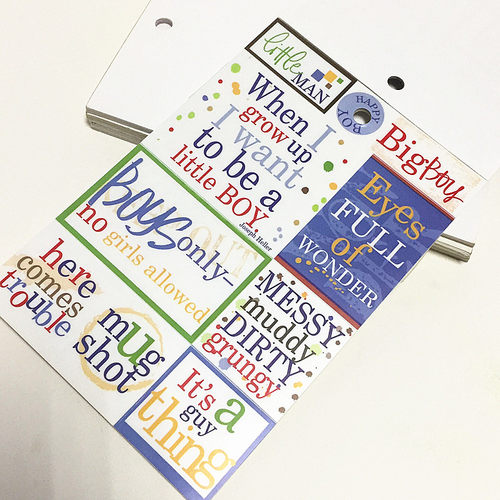 little
MAN
HAPPY
BOY
When I
grow up
I want
to be a
little BOY.
Joseph Heller
BigBoy
Eyes
FULL
of
WONDER
Boys only—
no girls allowed
here
comes
trouble
mug
shot
MESSY
muddy
DIRTY
grungy
It's a
guy
thing